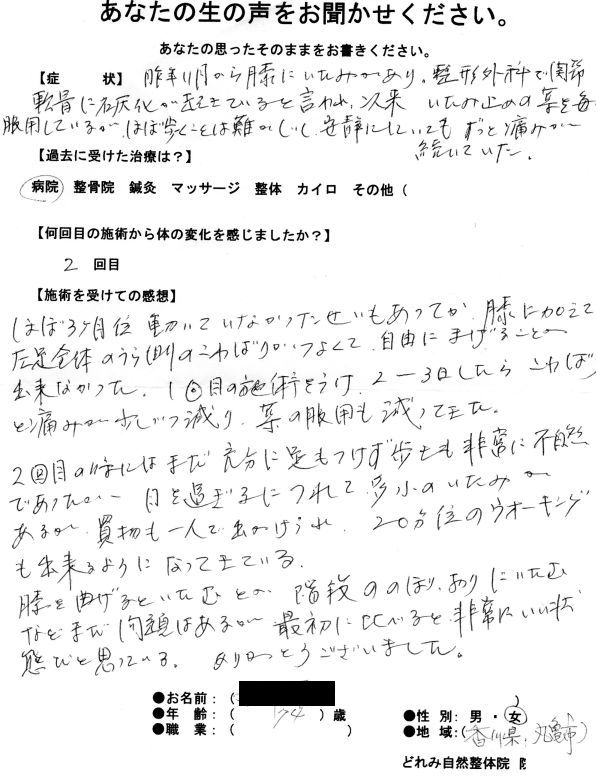 あなたの生の声をお聞かせください。
あなたの思ったそのままをお書きください。
【症 状】 昨年11月から膝にいたみがあり、整形外科で関節
軟骨に石灰化が起きていると言われ、以来 いたみ止めの薬を毎
服用しているが、ほぼ歩くことは難かしく、安静にしていてもずっと痛みが
続いていた。
【過去に受けた治療は?】
病院 整骨院 鍼灸 マッサージ 整体 カイロ その他(
【何回目の施術から体の変化を感じましたか?】
2 回目
【施術を受けての感想】
ほぼ3ヶ月位 動いていなかったせいもあってか、膝に加えて
左足全体のうら側のこわばりがつよくて、自由にまげることが
出来なかった。1回目の施術をうけ、2-3日したら こわば
と痛みが少しづつ減り、薬の服用も減ってきた。
2回目の時にはまだ充分に足もつけず歩きも非常に不自然
であったが、日を過ぎるにつれて、多少のいたみが
あるが、買物も一人で出かけられ、20分位のウオーキング
も出来るようになってきている。
膝を曲げるといたむとか、階段ののぼり、おりにいたむ
などまだ問題はあるが、最初に比べると、非常にいい状
態だと思っている。ありがとうございました。
●お名前:(
●年 齢:( 74 )歳
●職 業:( )
)
●性 別:男・女
●地 域:(香川県、丸亀市)
どれみ自然整体院